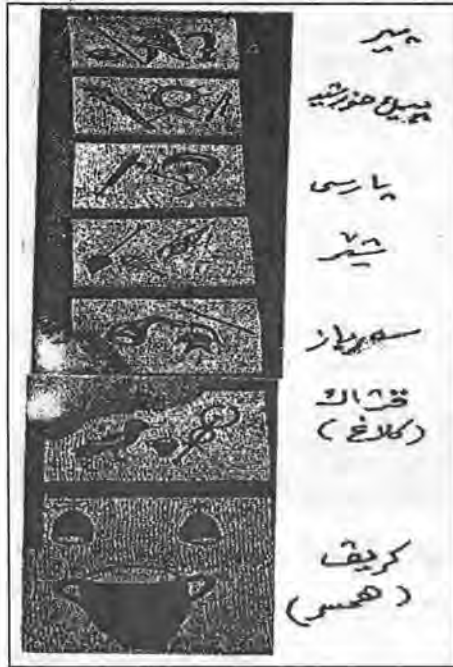 پیر
خورشید
پارسی
شیر
سرباز
(کلاغ)
کریف
(همسر)